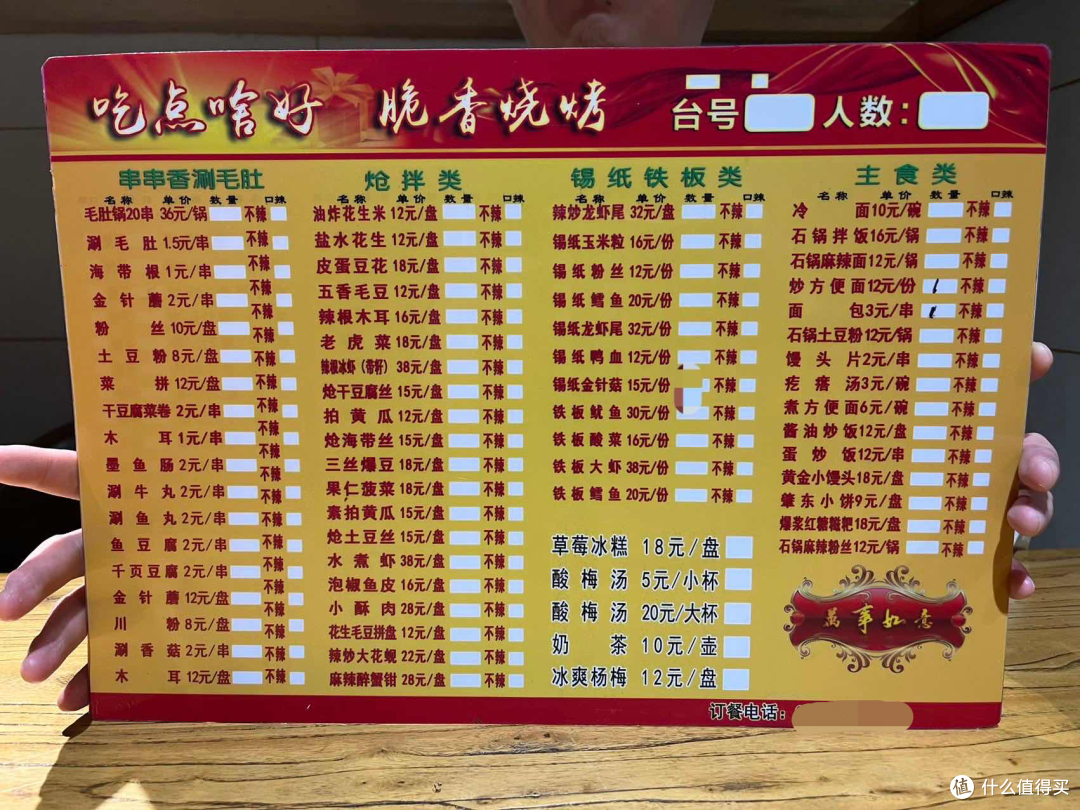 吃点啥好 脆香烧烤 台号 人数:
串串香涮毛肚
名称 单价 数量 口辣
毛肚锅20串 36元/锅 不辣
涮毛肚 1.5元/串 不辣
海带根 1元/串 不辣
金针蘑 2元/串 不辣
粉丝 10元/盘 不辣
土豆粉 8元/盘 不辣
菜拼 12元/盘 不辣
干豆腐菜卷 2元/串 不辣
木耳 1元/串 不辣
墨鱼肠 2元/串 不辣
涮牛丸 2元/串 不辣
涮鱼丸 2元/串 不辣
鱼豆腐 2元/串 不辣
千页豆腐 2元/串 不辣
金针蘑 12元/盘 不辣
川粉 8元/盘 不辣
涮香菇 2元/串 不辣
木耳 12元/盘 不辣
炝拌类
名称 单价 数量 口辣
油炸花生米 12元/盘 不辣
盐水花生 12元/盘 不辣
皮蛋豆花 18元/盘 不辣
五香毛豆 12元/盘 不辣
辣根木耳 16元/盘 不辣
老虎菜 18元/盘 不辣
辣根冰虾(带杯) 38元/盘 不辣
炝干豆腐丝 15元/盘 不辣
拍黄瓜 12元/盘 不辣
炝海带丝 15元/盘 不辣
三丝爆豆 18元/盘 不辣
果仁菠菜 18元/盘 不辣
素拍黄瓜 15元/盘 不辣
炝土豆丝 15元/盘 不辣
水煮虾 38元/盘 不辣
泡椒鱼皮 16元/盘 不辣
小酥肉 28元/盘 不辣
花生毛豆拼盘 12元/盘 不辣
辣炒大花蚬 22元/盘 不辣
麻辣醉蟹钳 28元/盘 不辣
锡纸铁板类
名称 单价 数量 口辣
辣炒龙虾尾 32元/盘 不辣
锡纸玉米粒 16元/份 不辣
锡纸粉丝 12元/份 不辣
锡纸鳕鱼 20元/份 不辣
锡纸龙虾尾 32元/份 不辣
锡纸鸭血 12元/份 不辣
锡纸金针菇 15元/份 不辣
铁板鱿鱼 30元/份 不辣
铁板酸菜 16元/份 不辣
铁板大虾 38元/份 不辣
铁板鳕鱼 20元/份 不辣
草莓冰糕 18元/盘
酸梅汤 5元/小杯
酸梅汤 20元/大杯
奶茶 10元/壶
冰爽杨梅 12元/盘
主食类
名称 单价 数量 口辣
冷面 10元/碗 不辣
石锅拌饭 16元/锅 不辣
石锅麻辣面 12元/锅 不辣
炒方便面 12元/份 不辣
面包 3元/串 不辣
石锅土豆粉 12元/锅 不辣
馒头片 2元/串 不辣
疙瘩汤 3元/碗 不辣
煮方便面 6元/碗 不辣
酱油炒饭 12元/盘 不辣
蛋炒饭 12元/串 不辣
黄金小馒头 18元/盘 不辣
肇东小饼 9元/盘 不辣
爆浆红糖糍粑 18元/盘 不辣
石锅麻辣粉丝 12元/锅 不辣
萬事如意
订餐电话:
值 什么值得买